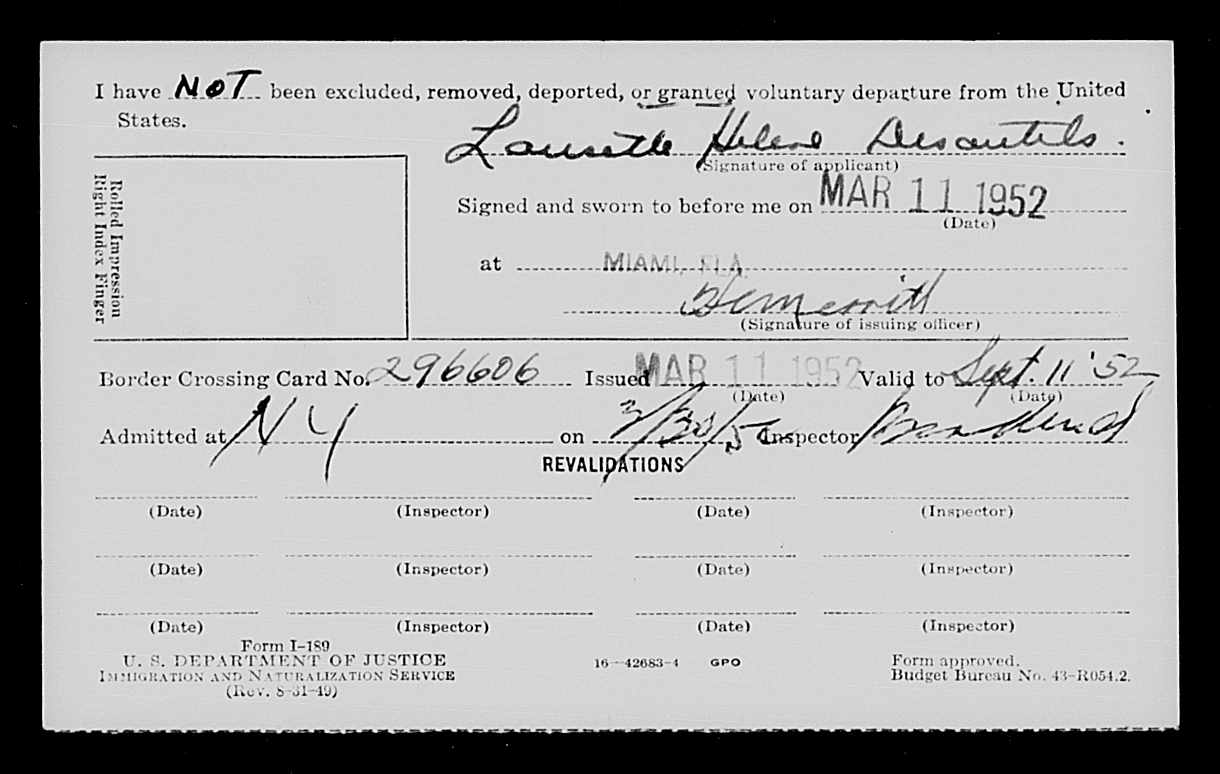 I have NOT been excluded, removed, deported, or granted voluntary departure from the United
States.
Laurette Helene Desautels.
(Signature of applicant)
Rolled Impression
Right Index Finger
Signed and sworn to before me on MAR 11 1952
(Date)
at MIAMI, FLA.
(Signature of issuing officer)
Border Crossing Card No. 296606 Issued MAR 11 1952 Valid to Sept. 11 '52
(Date) (Date)
Admitted at N Y on Inspector
REVALIDATIONS
(Date) (Inspector) (Date) (Inspector)
(Date) (Inspector) (Date) (Inspector)
(Date) (Inspector) (Date) (Inspector)
Form I-189
U. S. DEPARTMENT OF JUSTICE
IMMIGRATION AND NATURALIZATION SERVICE
(Rev. 8-31-49)
16—42683-4 GPO
Form approved.
Budget Bureau No. 43-R054.2.